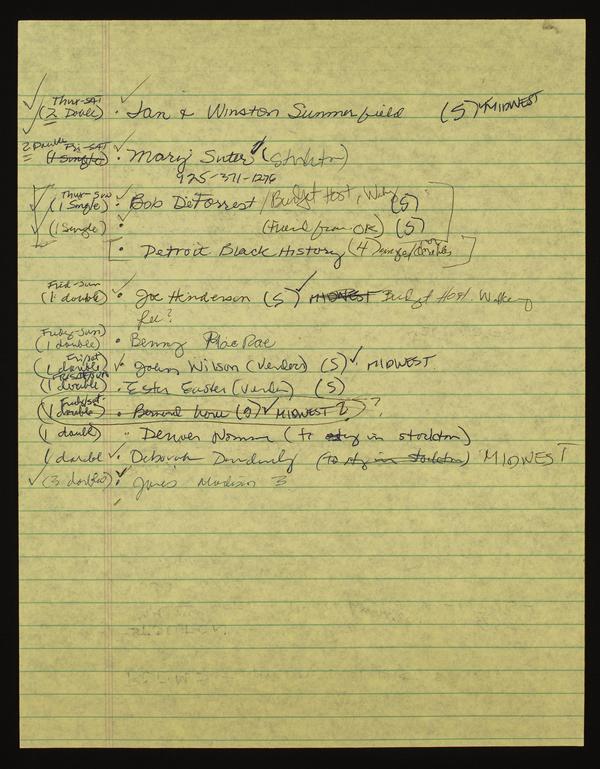 Thur-SAT
(2 Double) • Ian & Winston Summerfield (5) MIDWEST
2 Double Fri-SAT
(1 Single) • Mary Suter (Stockton)
925-371-1276
Thur-Sun
(1 Single) • Bob DeForrest / Budget Host, (5)
(1 Single) • (Friend from OK) (5)
• Detroit Black History (4
Frid-Sun
(1 double) • Joe Henderson (5) MIDWEST Budget Host
Friday-Sun)
(1 double) • Benny MacRae
Fri/Sat
(1 double) • John Wilson (Vendor) (5) MIDWEST
(1 double) • Ester Easter (Vendor) (5)
Friday/Sat
(1 double) • MIDWEST ?
(1 double) Denver Norman (to in stockton)
1 double • Deborah (to stay in stockton) MIDWEST
(3 doubles) • Madison 3